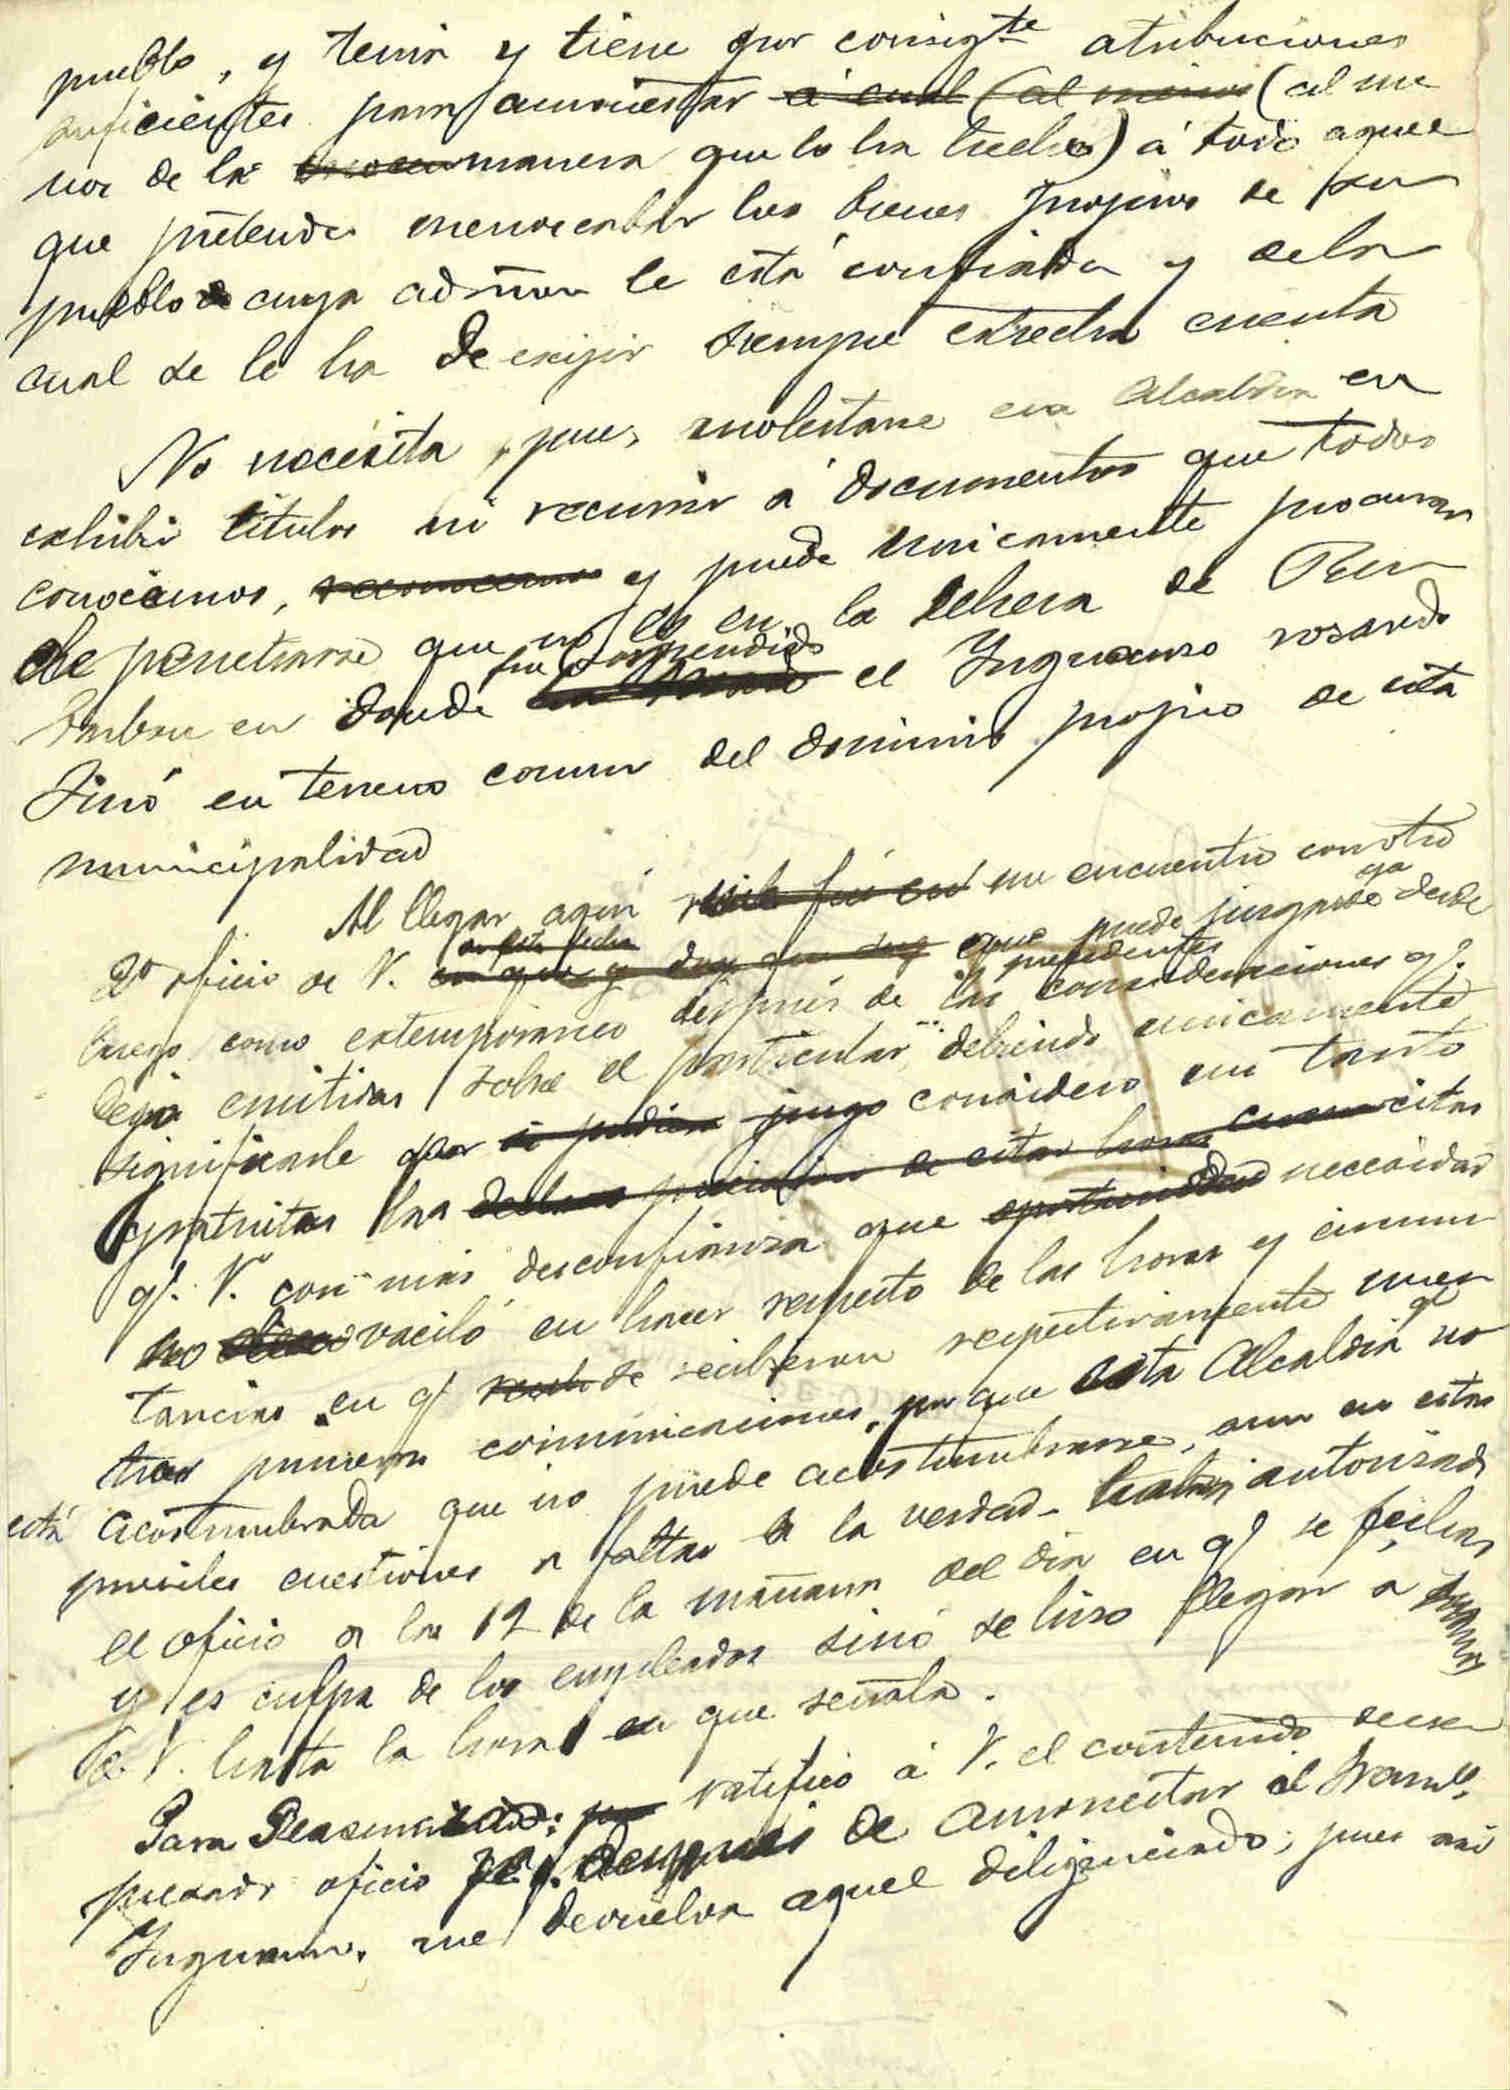 pueblo, y tenia y tiene por consigte atribuciones
suficientes para amonestar á cual (al menos (al me
nos de la manera que lo ha hecho) á todo aquel
que pretenda menoscabar los bienes propios de su
pueblo cuya admon le está confiada y de la
cual se le ha de exijir siempre estrecha cuenta
No necesita, pues, molestarse esa Alcaldia en
exhibir titulos ni recurrir á documentos que todos
conocemos, reconocemos y puede unicamente procurar
de penetrarse que no es en la dehesa de
en donde fue sorprendido el Inguanzo rosando
Sinó en terreno comun del dominio propio de esta
municipalidad
Al llegar aquí me encuentro con otro
2º oficio de V. en esta fecha que puede juzgarse ya desde
luego como extemporaneo después de las precedentes consideraciones q.
dejo emitidas sobre el particular, debiendo unicamente
significarle que si pudiera juzgo considero un tanto
gratuitas las de citar horas citas
q. V. con más desconfianza que oportunidad necesidad
no vaciló en hacer respecto de las horas y circuns
tancias en q se recibieron respectivamente nues
tras primeras comunicaciones, por que esta Alcaldia q no
está acostumbrada que no puede acostumbrarse, aun en estas
pueriles cuestiones a faltar á la verdad autorizado
el oficio a las 12 de la mañana del dia en q se fecha
y es culpa de los empleados sinó se hizo llegar a
V. hasta la hora en que señala.
Para ratifico á V. el contenido de su
pasado oficio después de amonestar al
me devuelva aquel diligenciado; pues asi